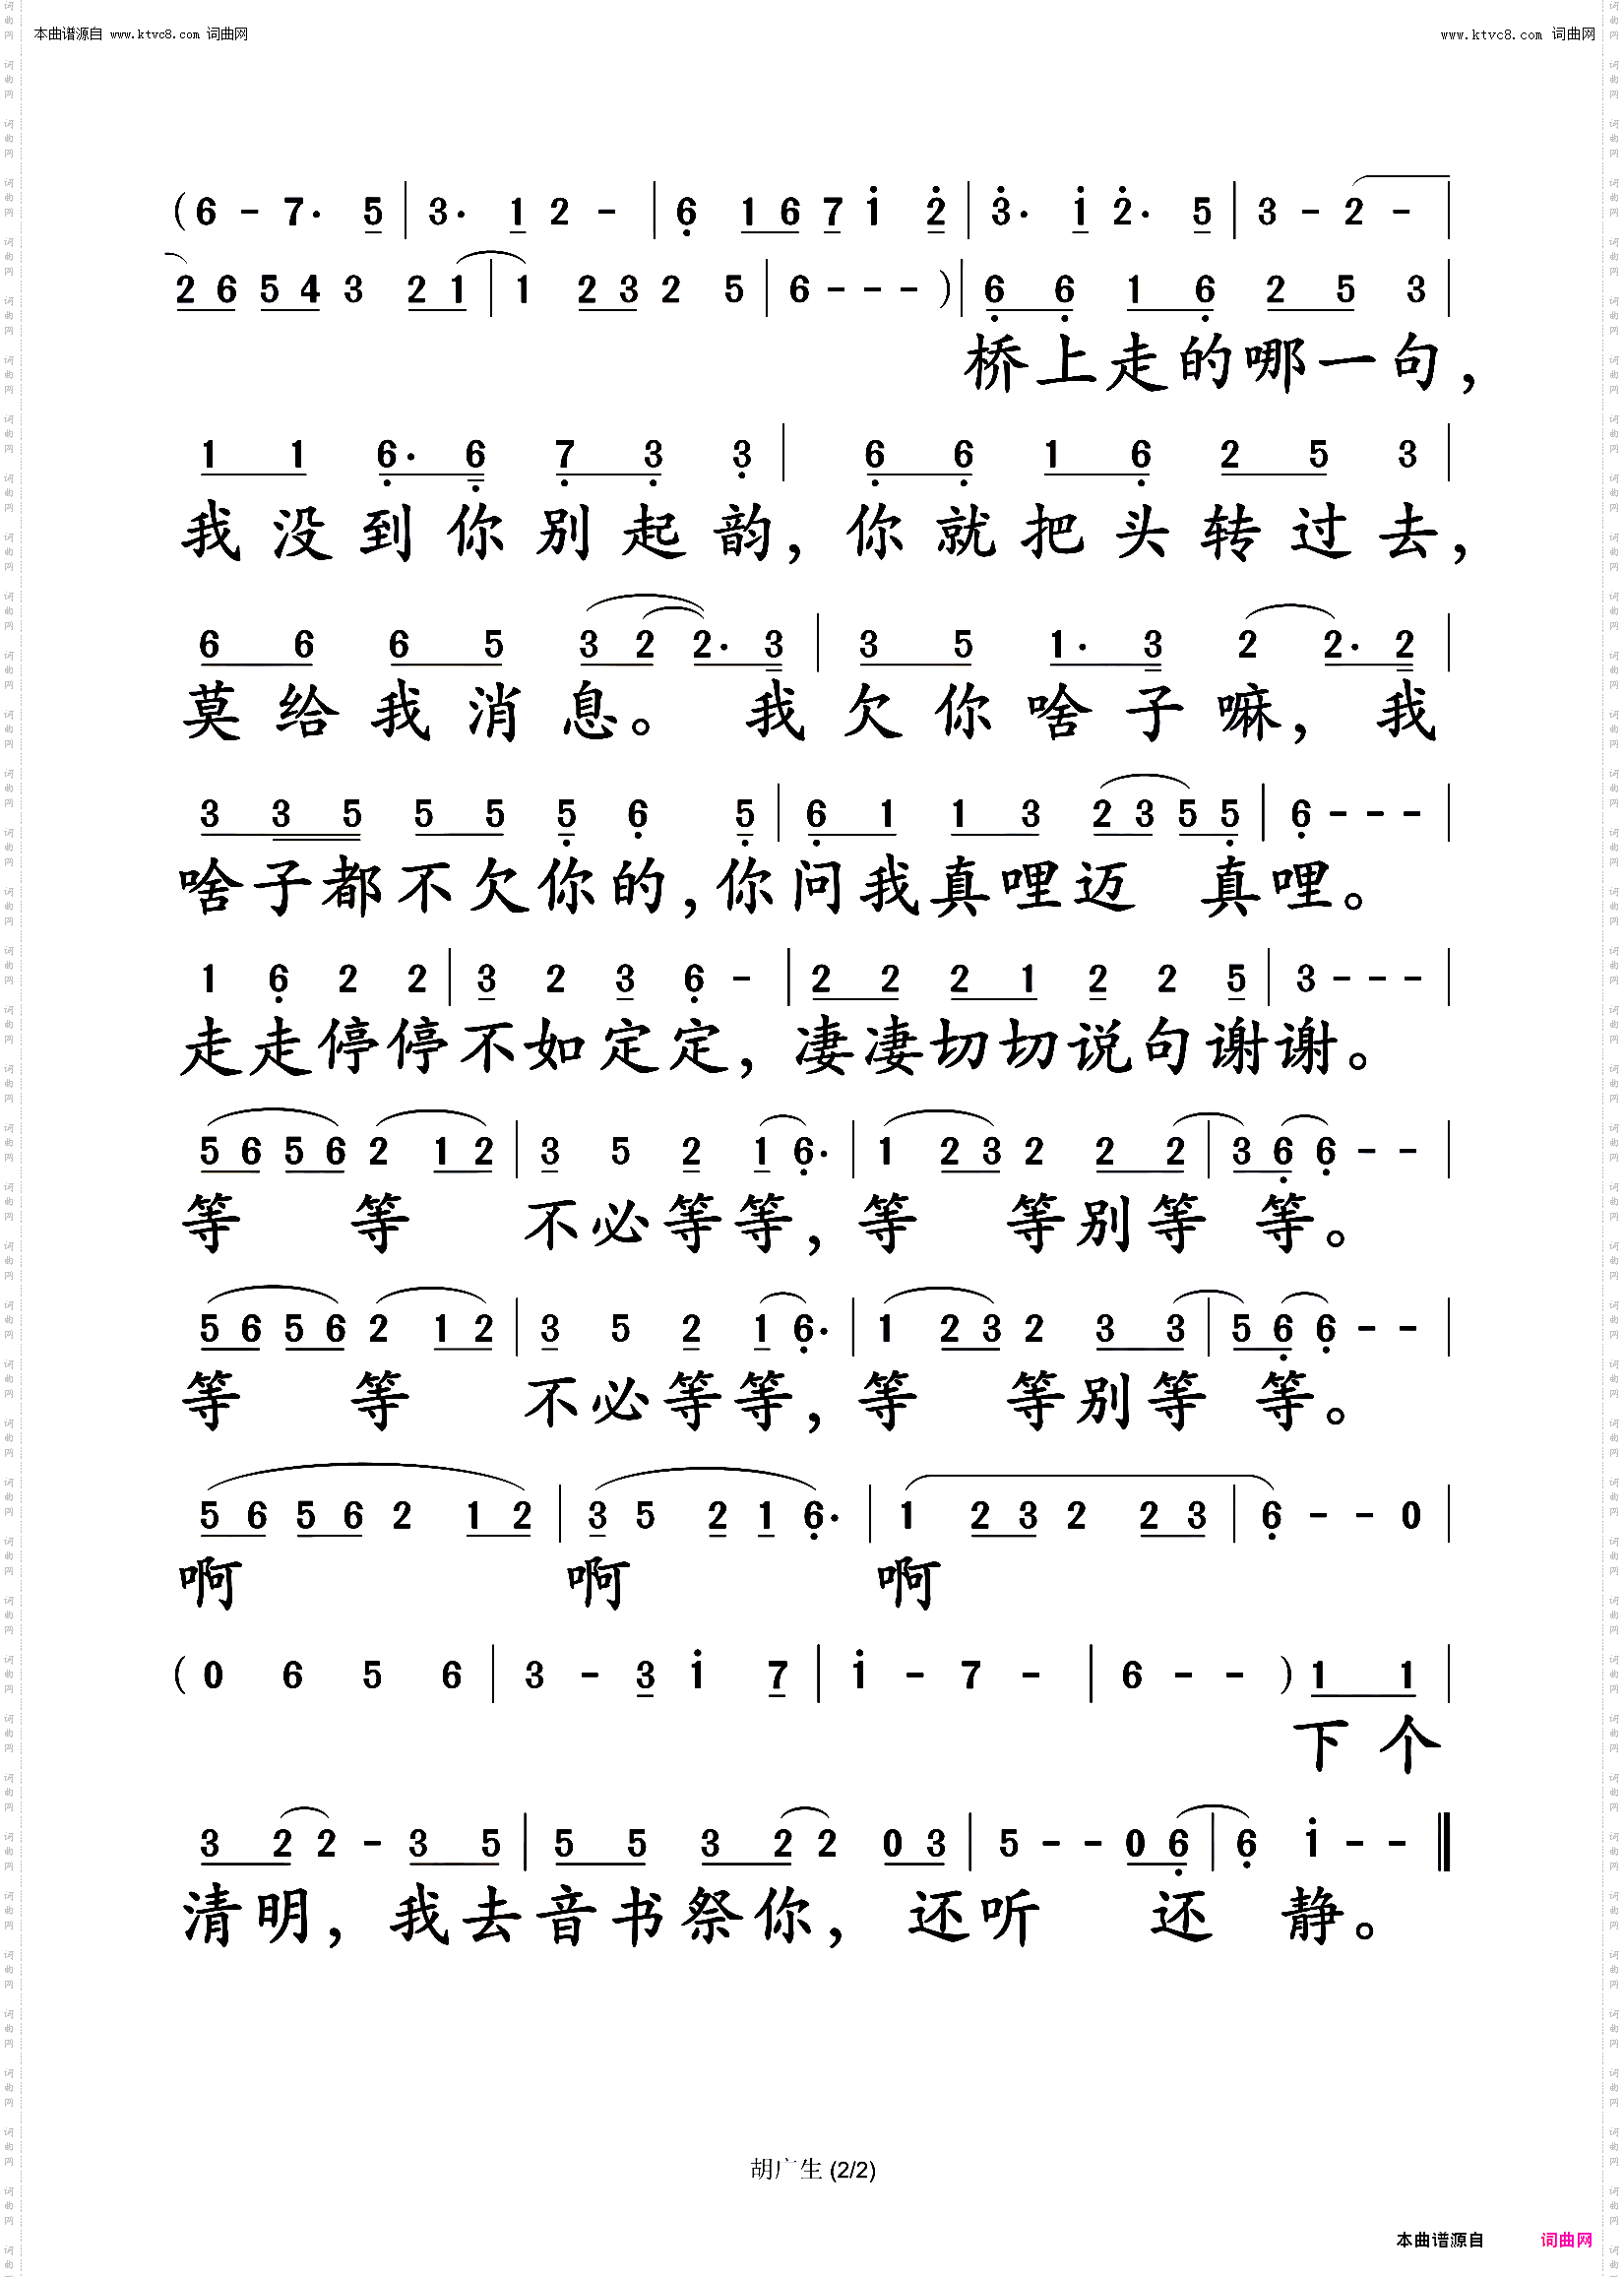 本曲谱源自 www.ktvc8.com 词曲网
www.ktvc8.com 词曲网
(6 - 7. 5 | 3. 1 2 - | 6 1 6 7 1 2 | 3. 1 2. 5 | 3 - 2 - |
2 6 5 4 3 2 1 | 1 2 3 2 5 | 6 - - - ) | 6 6 1 6 2 5 3 |
桥上走的哪一句，
1 1 6. 6 7 3 3 | 6 6 1 6 2 5 3 |
我没到你别起韵，你就把头转过去，
6 6 6 5 3 2 2. 3 | 3 5 1. 3 2 2. 2 |
莫给我消息。 我欠你啥子嘛，我
3 3 5 5 5 5 6 5 | 6 1 1 3 2 3 5 5 | 6 - - - |
啥子都不欠你的，你问我真哩迈 真哩。
1 6 2 2 | 3 2 3 6 - | 2 2 2 1 2 2 5 | 3 - - - |
走走停停不如定定，凄凄切切说句谢谢。
5 6 5 6 2 1 2 | 3 5 2 1 6. | 1 2 3 2 2 2 | 3 6 6 - - |
等 等 不必等等，等 等别等 等。
5 6 5 6 2 1 2 | 3 5 2 1 6. | 1 2 3 2 3 3 | 5 6 6 - - |
等 等 不必等等，等 等别等 等。
5 6 5 6 2 1 2 | 3 5 2 1 6. | 1 2 3 2 2 3 | 6 - - 0 |
啊 啊 啊
( 0 6 5 6 | 3 - 3 1 7 | 1 - 7 - | 6 - - ) 1 1 |
下个
3 2 2 - 3 5 | 5 5 3 2 2 0 3 | 5 - - 0 6 | 6 1 - - ‖
清明，我去音书祭你，还听 还 静。
胡广生 (2/2)
本曲谱源自 词曲网